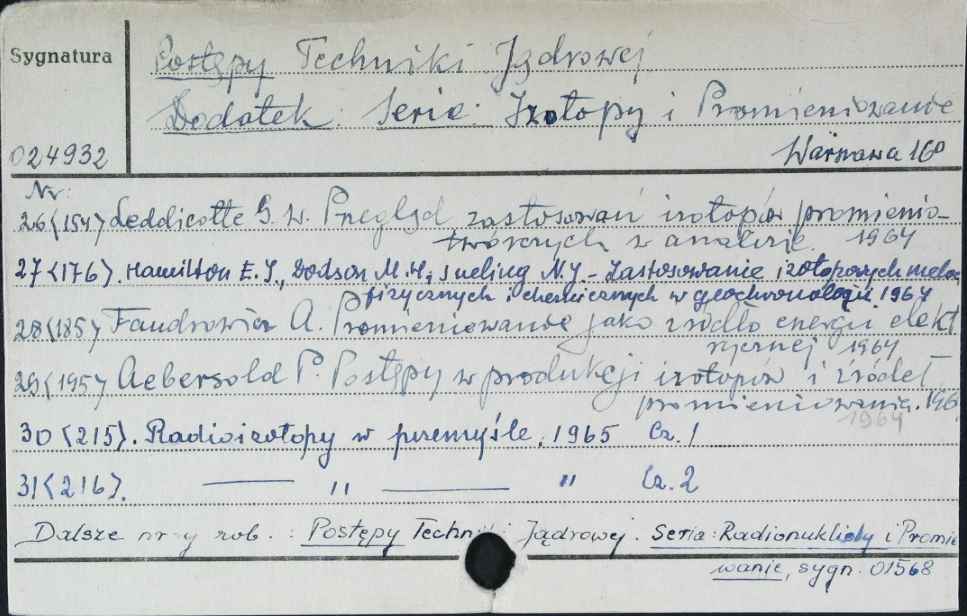 Sygnatura
Postępy Techniki Jądrowej
Dodatek: Seria: Izotopy i Promieniowanie
024932
Warszawa 16°
Nr:
26<154> Leddicotte G. W. Przegląd zastosowań izotopów promienio-
twórczych w analizie. 1964
27<176>. Hamilton E.I., Dodson M.H., Sneling N.J. - Zastosowanie izotopowych metod
fizycznych i chemicznych w geochronologii 1964
28<185> A. Promieniowanie jako źródło energii elekt
rycznej 1964
29<195> Aebersold P. Postępy w produkcji izotopów i źródeł
promieniowania. 196
1964
30<215>. Radioizotopy w przemyśle, 1965 Cz. 1
31<216>. —— " —— " Cz. 2
Dalsze nr-y zob. : Postępy Techniki Jądrowej. Seria: Radionuklidy i Promie
wanie, sygn. 01568